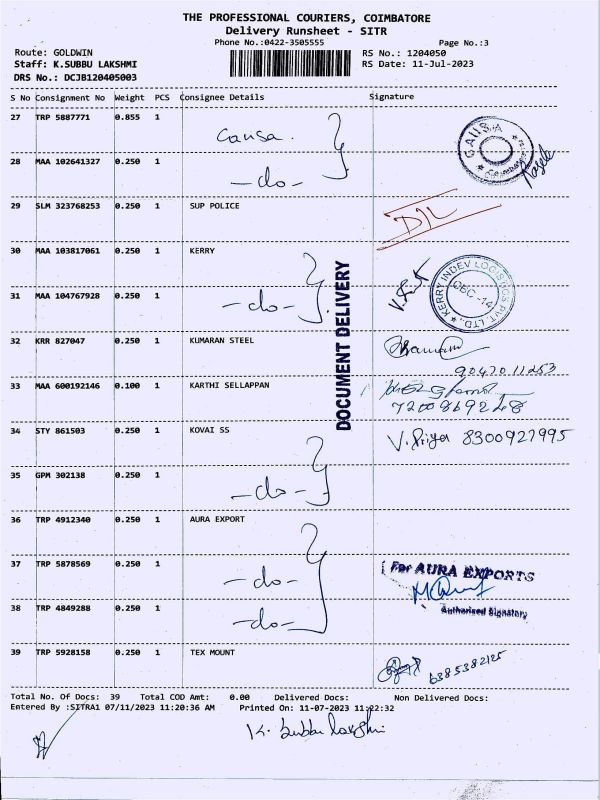 THE PROFESSIONAL COURIERS, COIMBATORE
Delivery Runsheet - SITR
Phone No.:0422-3505555 Page No.:3
Route: GOLDWIN RS No.: 1204050
Staff: K.SUBBU LAKSHMI RS Date: 11-Jul-2023
DRS No.: DCJB120405003
S No Consignment No Weight PCS Consignee Details Signature
27 TRP 5887771 0.855 1 Causa. CAUSA
28 MAA 102641327 0.250 1 -do-
29 SLM 323768253 0.250 1 SUP POLICE D/L
30 MAA 103817061 0.250 1 KERRY
KERRY INDEV LOGISTICS PVT. LTD., CBC -14
31 MAA 104767928 0.250 1 -do-
32 KRR 827047 0.250 1 KUMARAN STEEL
9042011253
33 MAA 600192146 0.100 1 KARTHI SELLAPPAN
7200869248
34 STY 861503 0.250 1 KOVAI SS V. Priya 8300927995
35 GPM 302138 0.250 1 -do-
36 TRP 4912340 0.250 1 AURA EXPORT
37 TRP 5878569 0.250 1 -do- For AURA EXPORTS
38 TRP 4849288 0.250 1 -do- Authorised Signatory
39 TRP 5928158 0.250 1 TEX MOUNT 6385382125
DOCUMENT DELIVERY
Total No. Of Docs: 39 Total COD Amt: 0.00 Delivered Docs: Non Delivered Docs:
Entered By :SITRA1 07/11/2023 11:20:36 AM Printed On: 11-07-2023 11:22:32
K. Subbu lakshmi